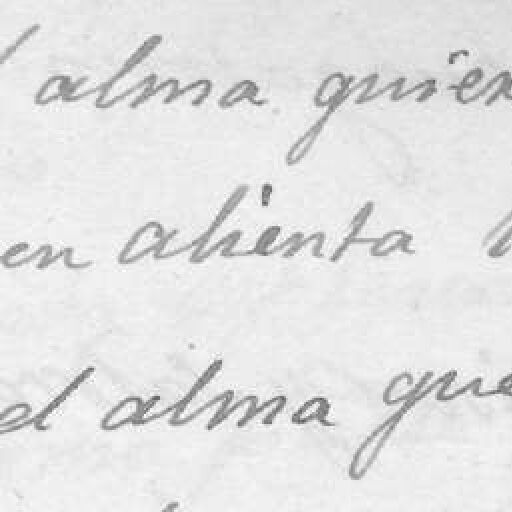 alma quien
en alienta
el alma que